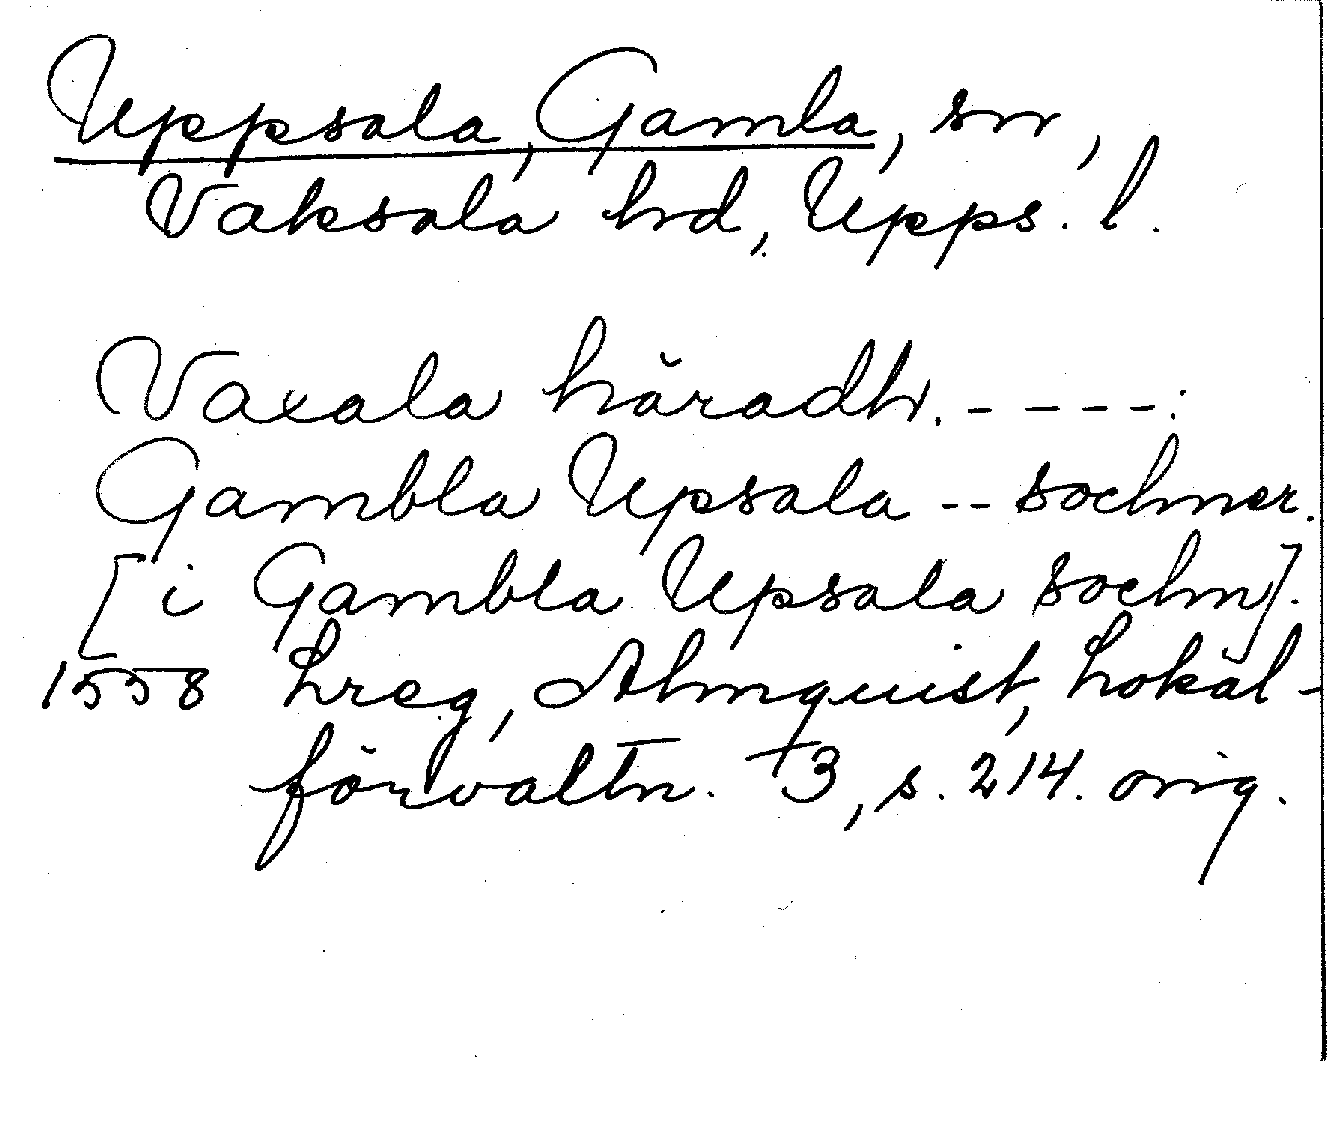 Uppsala, Gamla, sn,
Vaksala hd, Upps. l.
Vaxala häradh. - - - -:
Gambla Upsala -- sochner.
[i Gambla Upsala sochn].
1558 Lreg, Almquist, Lokal-
förvaltn. 3, s. 214. orig.